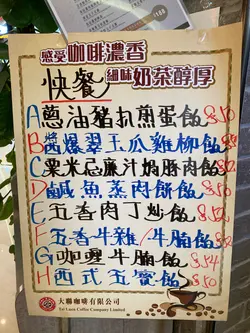 感受咖啡濃香
細味奶茶醇厚
快餐
A蔥油豬扒煎蛋飯 $50
B醬爆翠玉瓜雞柳飯
C粟米忌廉汁焗豚肉飯
D鹹魚蒸肉餅飯 $50
E五香肉丁炒飯
F五香牛雜/牛腩飯
G咖喱牛腩飯 $54
H西式五寶飯 $50
大聯咖啡有限公司
Tai Luen Coffee Company Limited